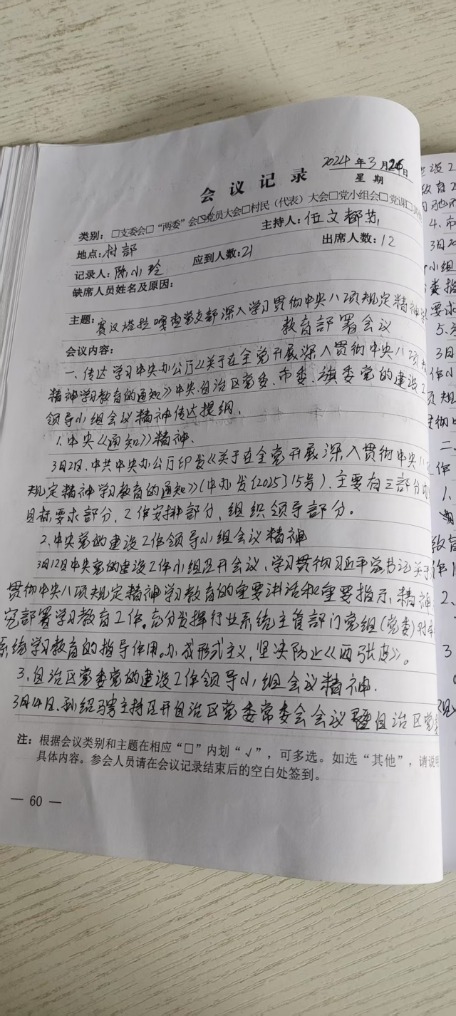 2024年3月26日
会议记录 星期
类别：□支委会□“两委”会☑党员大会□村民（代表）大会□党小组会□党课□
地点：村部 主持人：伍文都苏
记录人：陈小玲 应到人数：21 出席人数：12
缺席人员姓名及原因：
主题：党支部深入学习贯彻中央八项规定精神学
教育部署会议
会议内容：
一、传达学习中央办公厅《关于在全党开展深入贯彻中央八项
精神学习教育的通知》中央、自治区党委、市委、旗委党的建设工
领导小组会议精神传达提纲。
1.中央《通知》精神。
3月2日，中共中央办公厅印发《关于在全党开展深入贯彻中央八
规定精神学习教育的通知》（中办发〔2025〕15号），主要有三部分内
目标要求部分，工作安排部分，组织领导部分。
2.中央党的建设工作领导小组会议精神
3月12日中央党的建设工作小组召开会议，学习贯彻习近平总书记关于
贯彻中央八项规定精神学习教育的重要讲话和重要指示精神
究部署学习教育工作。充分发挥行业系统主管部门党组（党委）对本
系统学习教育的指导作用。力戒形式主义，坚决防止《两张皮》。
3.自治区党委党的建设工作领导小组会议精神.
3月14日，孙绍骋主持召开自治区党委常委会会议 自治区党
注：根据会议类别和主题在相应“□”内划“√”，可多选。如选“其他”，请说明
具体内容。参会人员请在会议记录结束后的空白处签到。
— 60 —